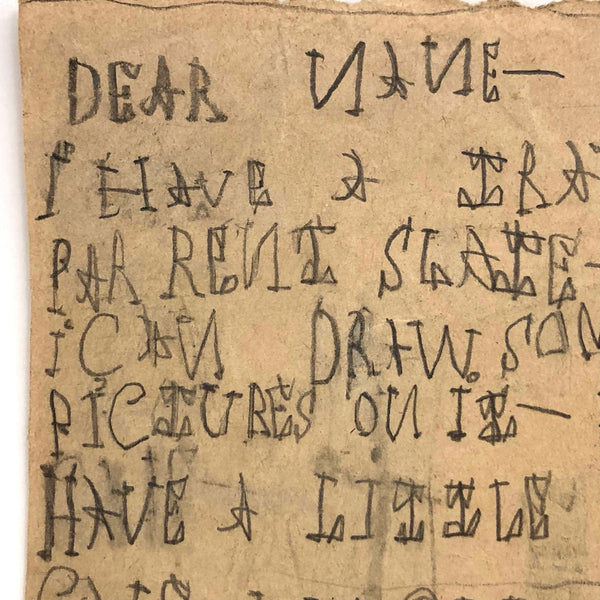 DEAR NANE—
I HAVE A TRA
PARRENT SLATE—
I CAN DRAW SOM
PICTURES ON IT—
HAVE A LITTLE